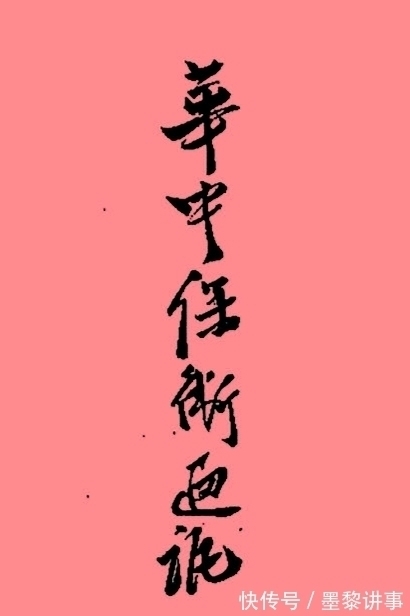 華中保衛通訊
快传号/墨黎讲事